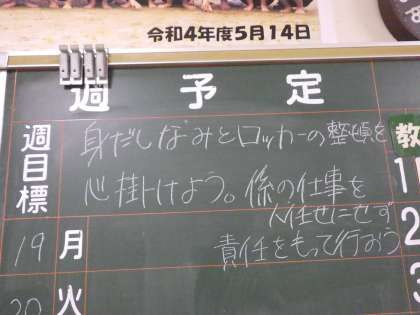 令和4年度5月14日
週予定
週目標
身だしなみとロッカーの整頓を
心掛けよう。係の仕事を
人任せにせず
責任をもって行おう
教
1
19 月
2
20 火
3